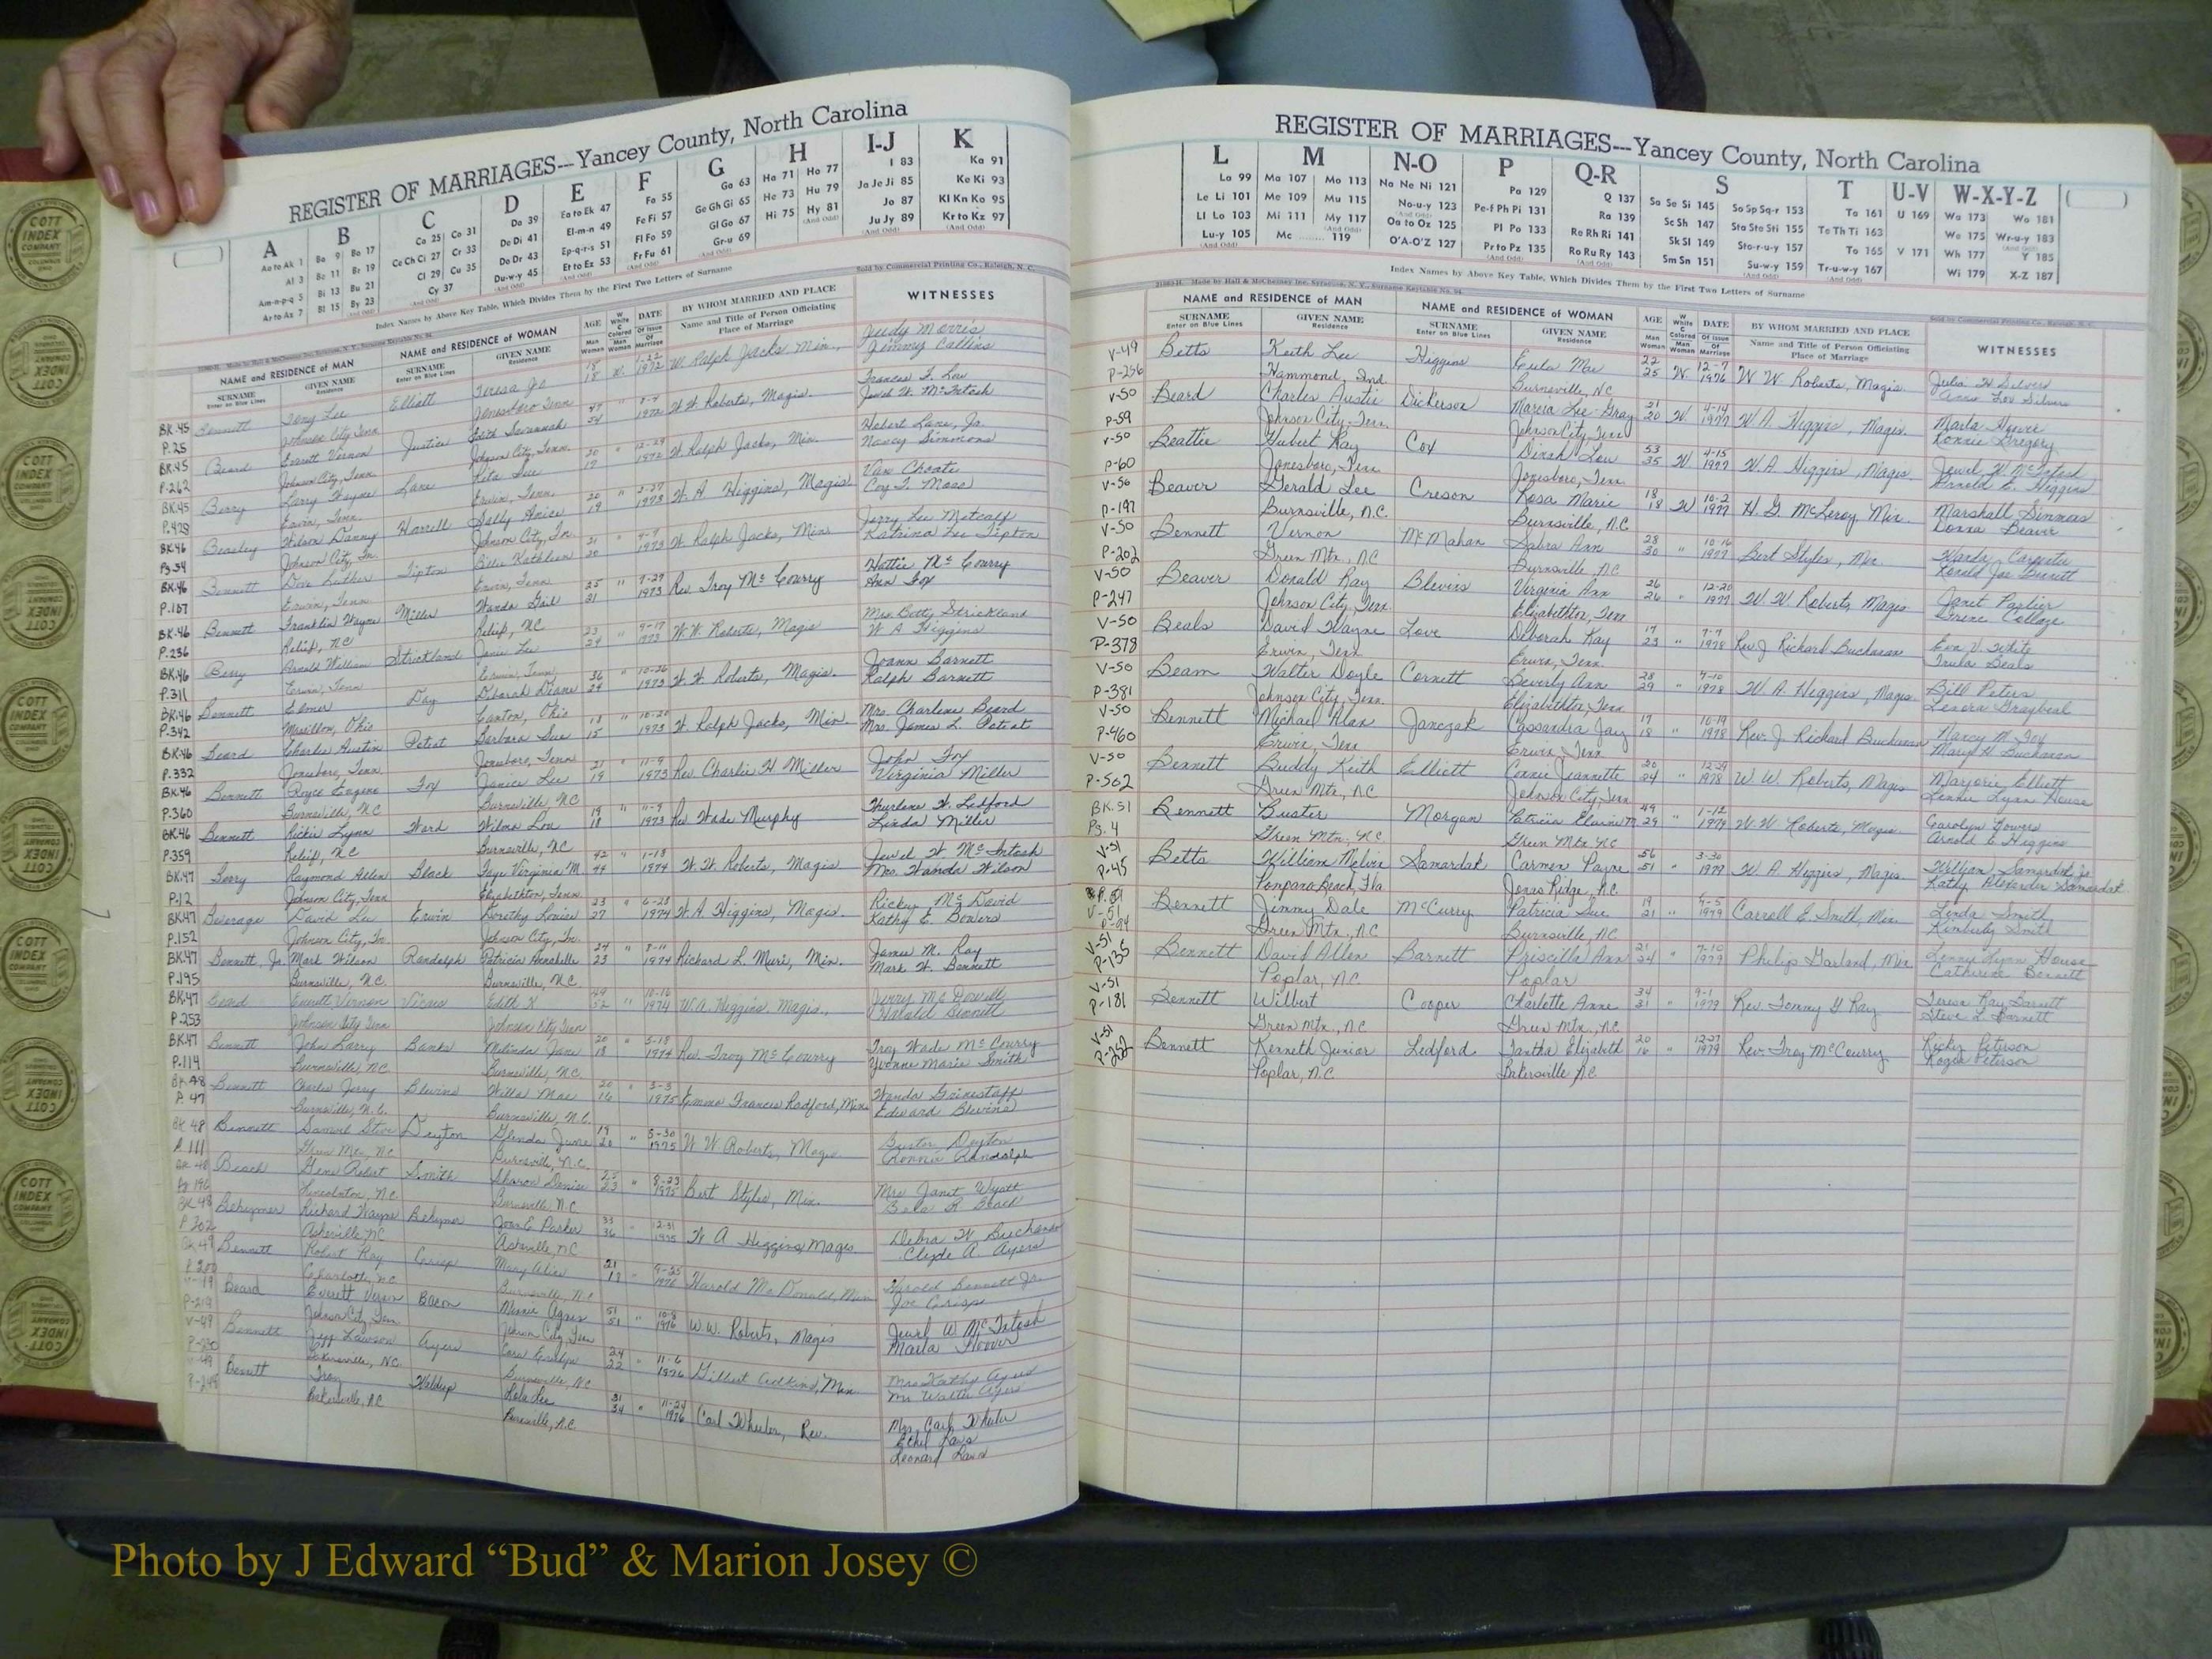 REGISTER OF MARRIAGES---Yancey County, North Carolina
A B C D E F G H I-J K
Aa to Ak 1 Ba 9 Bo 17 Ca 25 Co 31 Da 39 Ea to Ek 47 Fa 55 Ga 63 Ha 71 Ho 77 I 83 Ka 91
Al 3 Be 11 Br 19 Ce Ch Ci 27 Cr 33 De Di 41 El-m-n 49 Fe Fi 57 Ge Gh Gi 65 He 73 Hu 79 Ja Je Ji 85 Ke Ki 93
Am-n-p-q 5 Bi 13 Bu 21 Cl 29 Cu 35 Do Dr 43 Ep-q-r-s 51 Fl Fo 59 Gl Go 67 Hi 75 Hy 81 Jo 87 Kl Kn Ko 95
Ar to Az 7 Bl 15 By 23 Cy 37 Du-w-y 45 Et to Ez 53 Fr Fu 61 Gr-u 69 Ju Jy 89 Kr to Kz 97
Index Names by Above Key Table, Which Divides Them by the First Two Letters of Surname
Sold by Commercial Printing Co., Raleigh, N. C.
NAME and RESIDENCE of MAN NAME and RESIDENCE of WOMAN AGE DATE BY WHOM MARRIED AND PLACE WITNESSES
SURNAME GIVEN NAME SURNAME GIVEN NAME Name and Title of Person Officiating
Enter on Blue Lines Residence Enter on Blue Lines Residence Place of Marriage
BK.45 Bennett Tony Lee Elliott Teresa Jo 18 W. 1-22 1972 W. Ralph Jacks Min., Judy Morris
P.25 Johnson City, Tenn Jonesboro Tenn 18 Jimmy Callins
BK.45 Beard Everett Vernon Justice Edith Savannah 1972 W. W. Roberts, Magis. Frances F. Low
P.262 Johnson City, Tenn Johnson City, Tenn. Jewel W. McIntosh
BK.45 Berry Larry Wayne Lane Rita Sue 20 12-29 1972 W. Ralph Jacks, Min. Hobert Lane, Jr.
P.429 Erwin, Tenn. Erwin, Tenn. 17 Nancy Simmons
BK.46 Beasley Wilson Danny Harrell Sally Anice 20 1973 W. A. Higgins, Magis. Van Choate
Pg.34 Johnson City, Tn. Johnson City, Tn. 19 Coy T. Moss
BK.46 Bennett Dove Luther Tipton Billie Kathleen 21 1973 W. Ralph Jacks, Min. Jerry Lee Metcalf
P.187 Erwin, Tenn Erwin, Tenn 20 Katrina Lee Tipton
BK.46 Bennett Franklin Wayne Miller Wanda Gail 25 " 7-29 1973 Rev. Troy McCourry Hattie McCourry
P.236 Relief, NC Relief, NC 21 Ann Fox
BK.46 Berry Arnold William Strickland Janie Lee 23 " 9-17 1973 W. W. Roberts, Magis Mrs. Betty Strickland
P.311 Erwin, Tenn Erwin, Tenn 24 W A Higgins
BK.46 Bennett Elmer Day Deborah Diane 36 " 10-26 1973 W. W. Roberts, Magis. Joann Barnett
P.342 Massillon, Ohio Canton, Ohio 24 Ralph Barnett
BK.46 Beard Charles Austin Poteat Barbara Sue 18 " 10-20 1973 W. Ralph Jacks, Min. Mrs. Charlene Beard
P.332 Jonesboro, Tenn. Jonesboro, Tenn 15 Mrs. James L. Poteat
BK.46 Bennett Royce Eugene Fox Janice Lee 21 " 11-9 1973 Rev. Charlie H. Miller John Fox
P.360 Burnsville, NC Burnsville, NC 19 Virginia Miller
BK.46 Bennett Rickie Lynn Ward Wilma Lou 19 " 11-9 1973 Rev Wade Murphy Thurlene W. Ledford
P.359 Relief, NC Burnsville, NC. 18 Linda Miller
BK.47 Berry Raymond Allen Black Faye Virginia M. 42 " 1-13 1974 W. W. Roberts, Magis Jewel W. McIntosh
P.12 Johnson City, Tenn Elizabethton, Tenn. 44 Mrs. Wanda Wilson
BK.47 Beverage David Lee Erwin Dorothy Louise 23 " 6-23 1974 W. A. Higgins, Magis. Ricky McDavid
P.152 Johnson City, Tn. Johnson City, Tn. 27 Kathy E. Bowers
BK.47 Bennett, Jr. Mark Wilson Randolph Patricia Annabelle 24 " 8-11 1974 Richard L. Muri, Min. James M. Ray
P.195 Burnsville, N.C. Burnsville, N.C. 23 Mark W. Bennett
BK.47 Beard Everett Vernon Vicars Edith K 49 " 10-16 1974 W. A. Higgins, Magis., Jerry McDowell
P.253 Johnson City Tenn Johnson City Tenn 52 Harold Bennett
BK.47 Bennett John Larry Banks Melinda Jane 20 " 5-18 1974 Rev. Troy McCourry Troy Wade McCourry
P.114 Burnsville, N.C. Burnsville, N.C. 18 Yvonne Marie Smith
BK.48 Bennett Charles Jerry Blevins Willa Mae 20 " 3-3 1975 Emma Frances Radford, Min. Wanda Grindstaff
P. 47 Burnsville, N.C. Burnsville, N.C. 16 Edward Blevins
BK 48 Bennett Samuel Steve Deyton Glenda June 19 " 5-30 1975 W W Roberts, Magis. Buster Deyton
P. 111 Green Mtn, NC Burnsville, N.C. 20 Ronnie Randolph
BK 48 Beach Gene Robert Smith Sharon Denise 23 " 8-23 1975 Bert Styles, Min. Mrs Janet Wyatt
Pg 196 Lincolnton, NC Burnsville, N.C. 23 Beach
BK 48 Behymer Richard Wayne Behymer Joan E Parker 33 " 12-31 1975 W A Higgins, Magis. Debra W Buchanan
P 302 Asheville, NC Asheville, NC 36 Clyde A. Ayers
BK 49 Bennett Robert Ray Crisp Mary Alice 21 " 9-25 1976 Harold McDonald, Min Harold Bennett Jr.
Charlotte, NC Burnsville, N.C. 19 Joe Crisp
Beard Everett Vernon Bacon Minnie Agnes 51 " 10-8 1976 W. W. Roberts, Magis Jewel W McIntosh
P-219 Johnson City, Tenn. Johnson City, Tenn 51 Marla Hoover
V-49 Bennett Jeff Lawson Ayers Evelyn 24 " 11-6 1976 Gilbert Adkins, Min Mrs Kathy Ayers
P-230 Bakersville, NC Burnsville, NC 22 Mr Walter Ayers
V-49 Bennett Troy Waldrup Lola Lee 31 " 11-24 1976 Carl Wheeler, Rev. Mrs. Carl Wheeler
P-249 Bakersville, N.C Burnsville, N.C. 34 Ethel Laws
Leonard Laws
REGISTER OF MARRIAGES---Yancey County, North Carolina
L M N-O P Q-R S T U-V W-X-Y-Z
La 99 Ma 107 Mo 113 Na Ne Ni 121 Pa 129 Q 137 Sa Se Si 145 So Sp Sq-r 153 Ta 161 U 169 Wa 173 Wo 181
Le Li 101 Me 109 Mu 115 No-u-y 123 Pe-f Ph Pi 131 Ra 139 Sc Sh 147 Sta Ste Sti 155 Te Th Ti 163 We 175 Wr-u-y 183
Ll Lo 103 Mi 111 My 117 Oa to Oz 125 Pl Po 133 Re Rh Ri 141 Sk Sl 149 Sto-r-u-y 157 To 165 V 171 Wh 177 Y 185
Lu-y 105 Mc 119 O'A-O'Z 127 Pr to Pz 135 Ro Ru Ry 143 Sm Sn 151 Su-w-y 159 Tr-u-w-y 167 Wi 179 X-Z 187
Index Names by Above Key Table, Which Divides Them by the First Two Letters of Surname
NAME and RESIDENCE of MAN NAME and RESIDENCE of WOMAN AGE DATE BY WHOM MARRIED AND PLACE WITNESSES
SURNAME GIVEN NAME SURNAME GIVEN NAME Name and Title of Person Officiating
Enter on Blue Lines Residence Enter on Blue Lines Residence Place of Marriage
V-49 Betts Keith Lee Higgins Eula Mae 22 W. 12-7 1976 W W. Roberts, Magis. Julia H Silvers
P-256 Hammond, Ind. Burnsville, NC 25 Ann Lov Silvers
V-50 Beard Charles Austin Dickerson Marcia Lee Gray 21 W 4-14 1977 W. A. Higgins, Magis. Marla Hoover
P-59 Johnson City, Tenn. Johnson City, Tenn 20 Ronnie Gregory
V-50 Beattie Hubert Ray Cox Dinah Lou 53 W 4-15 1977 W. A Higgins, Magis. Jewel W McIntosh
P-60 Jonesboro, Tenn Jonesboro, Tenn. 35 Arnold E. Higgins
V-56 Beaver Gerald Lee Creson Rosa Marie 18 W 10-2 1977 H. G. McLeroy, Min. Marshall Simmons
P-197 Burnsville, N.C. Burnsville, N.C. 18 Donna Beaver
V-50 Bennett Vernon McMahan Sabra Ann 28 " 10-16 1977 Bert Styles, Min. Wanda Carpenter
P-202 Green Mtn., NC Burnsville, NC 30 Ronald Joe Bennett
V-50 Beaver Donald Ray Blevins Virginia Ann 26 " 12-20 1977 W. W. Roberts, Magis Janet Parlier
P-247 Johnson City, Tenn. Elizabethton, Tenn 26
V-50 Beals David Wayne Love Deborah Kay 17 " 7-7 1978 Rev. J. Richard Buchanan Eva V. White
P-378 Erwin, Tenn Erwin, Tenn. 23 Trula Beals
V-50 Beam Walter Doyle Cornett Beverly Ann 28 " 7-10 1978 W. A. Higgins, Magis Bill Peters
P-381 Johnson City, Tenn. Elizabethton, Tenn 29 Lenora Graybeal
V-50 Bennett Michael Alan Janczak Cassandra Jay 17 " 10-19 1978 Rev. J. Richard Buchanan Nancy M. Fox
P-460 Erwin, Tenn Erwin, Tenn 18 Mary H. Buchanan
V-50 Bennett Buddy Keith Elliott Connie Jeannette 20 " 12-29 1978 W. W. Roberts, Magis Marjorie Elliott
P-502 Green Mtn., NC Johnson City, Tenn 24 Lennie Lynn House
BK.51 Bennett Buster Morgan Patricia Elaine M. 49 " 1-12 1979 W. W. Roberts, Magis Carolyn Bowers
Pg. 4 Green Mtn. NC Green Mtn NC 29 Arnold E. Higgins
V-51 Betts William Melvin Samardak Carmen Payne 56 " 3-30 1979 W A. Higgins, Magis William Samardak, Jr
P-45 Pompano Beach, Fla Jonas Ridge, N.C. 51 Kathy Alexander Samardak
V-51 Bennett Jimmy Dale McCurry Patricia Sue 19 " 1979 Carroll E. Smith, Min. Linda Smith
P-94 Green Mtn., N.C Burnsville, N.C 21 Kimberly Smith
V-51 Bennett David Allen Barnett Priscilla Ann 21 " 7-10 1979 Philip Garland, Min. Lenny Lynn House
P-135 Poplar, N.C. Poplar 24 Catherine Bennett
V-51 Bennett Wilbert Cooper Charlotte Anne 34 " 9-1 1979 Rev Tommy G Ray Teresa Ray Barnett
P-181 Green Mtn., N.C Green Mtn., N.C. 31 Steve L Barnett
V-51 Bennett Kenneth Junior Ledford Tantha Elizabeth 20 " 12-27 1979 Rev. Troy McCourry Ricky Peterson
P-252 Poplar, N.C. Bakersville N.C. 16 Roger Peterson
COTT INDEX COMPANY
Photo by J Edward “Bud” & Marion Josey ©